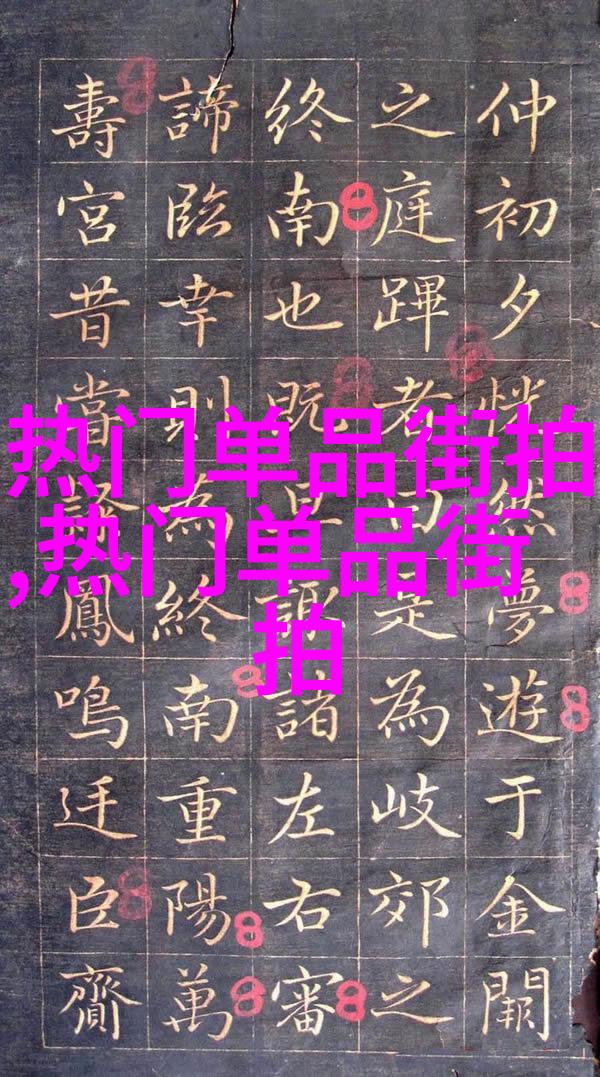 热门单品街拍
,热门单品街
拍
仲初夕恍然夢遊于金闕
之庭蹕者是為岐郊之
終南也既諸左右審
諦臨幸則為終南重陽萬
壽宮昔嘗鳳鳴廷臣齎